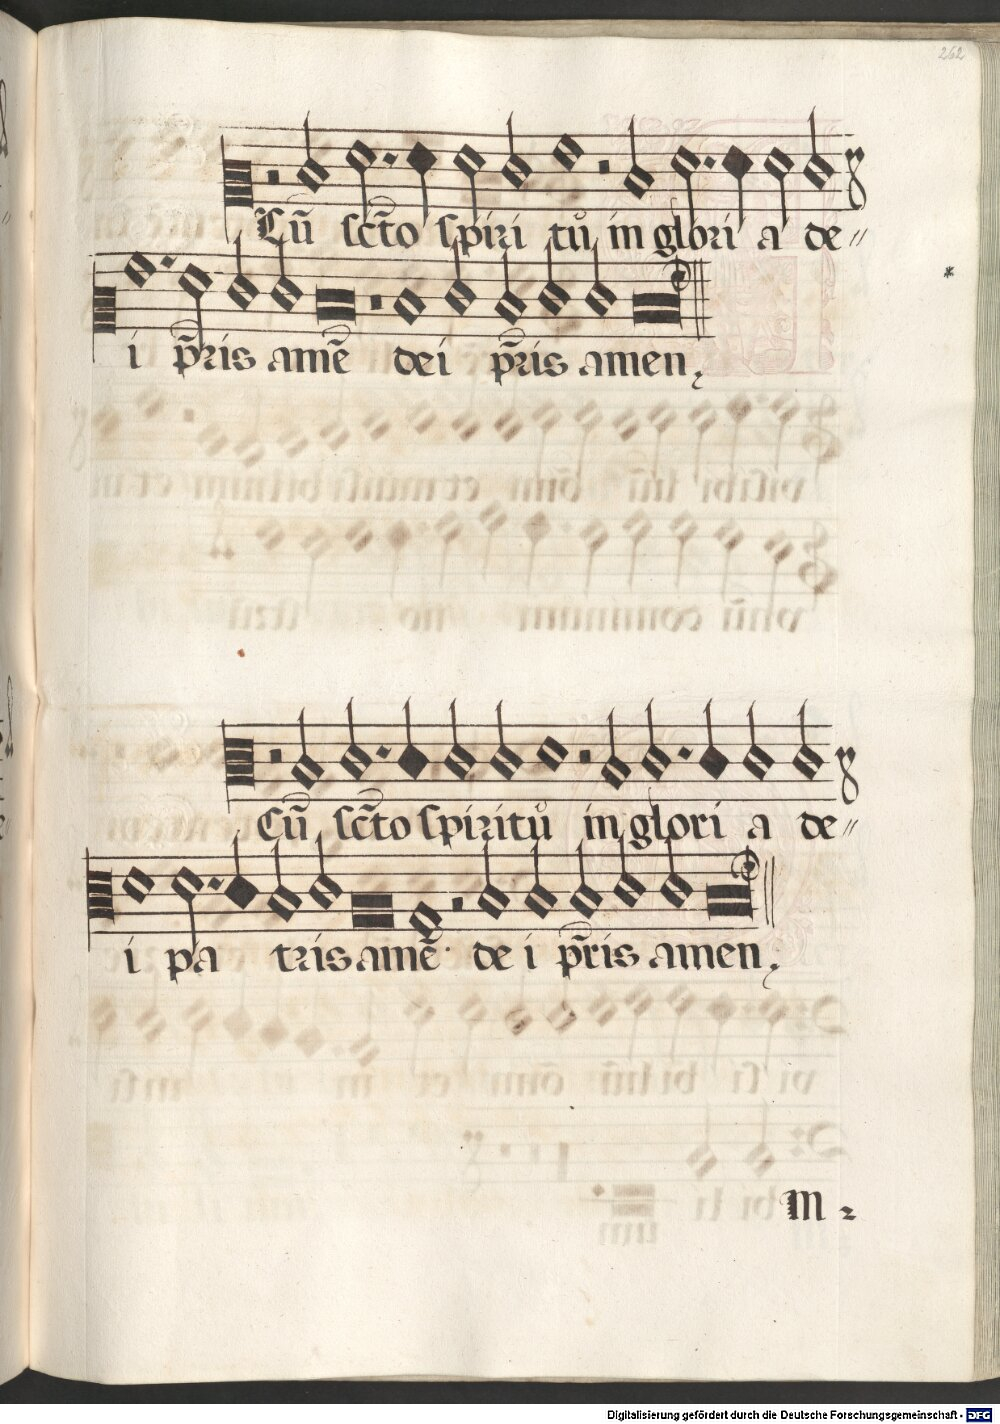 262
Cū sc̄to spiri tů in glori a de〃
i p̄ris amē dei p̄ris amen
*
Cū sc̄to spiritů in glori a de〃
i pa tris amē de i p̄ris amen
m 2
Digitalisierung gefördert durch die Deutsche Forschungsgemeinschaft - DFG